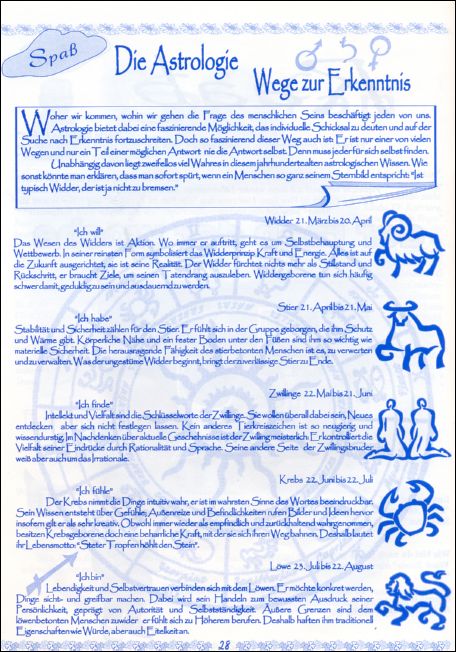 Spaß
Die Astrologie
Wege zur Erkenntnis
Woher wir kommen, wohin wir gehen die Frage des menschlichen Seins beschäftigt jeden von uns.
Astrologie bietet dabei eine faszinierende Möglichkeit, das individuelle Schicksal zu deuten und auf der
Suche nach Erkenntnis fortzuschreiten. Doch so faszinierend dieser Weg auch ist: Er ist nur einer von vielen
Wegen und nur ein Teil einer möglichen Antwort nie die Antwort selbst. Denn muss jeder für sich selbst finden.
Unabhängig davon liegt zweifellos viel Wahres in diesem jahrhundertealten astrologischen Wissen. Wie
sonst könnte man erklären, dass man sofort spürt, wenn ein Menschen so ganz seinem Sternbild entspricht: "Ist
typisch Widder, der ist ja nicht zu bremsen."
Widder 21. März bis 20. April
"Ich will"
Das Wesen des Widders ist Aktion. Wo immer er auftritt, geht es um Selbstbehauptung und
Wettbewerb. In seiner reinsten Form symbolisiert das Widderprinzip Kraft und Energie. Alles ist auf
die Zukunft ausgerichtet, sie ist seine Realität. Der Widder fürchtet nichts mehr als Stillstand und
Rückschritt, er braucht Ziele, um seinen Tatendrang auszuleben. Widdergeborene tun sich häufig
schwer damit, geduldig zu sein und ausdauernd zu werden.
Stier 21. April bis 21. Mai
"Ich habe"
Stabilität und Sicherheit zählen für den Stier. Er fühlt sich in der Gruppe geborgen, die ihm Schutz
und Wärme gibt. Körperliche Nähe und ein fester Boden unter den Füßen sind ihm so wichtig wie
materielle Sicherheit. Die herausragende Fähigkeit des stierbetonten Menschen ist es, zu verwerten
und zu verwalten. Was der ungestüme Widder beginnt, bringt der zuverlässige Stier zu Ende.
Zwillinge 22. Mai bis 21. Juni
"Ich finde"
Intellekt und Vielfalt sind die Schlüsselworte der Zwillinge. Sie wollen überall dabei sein, Neues
entdecken aber sich nicht festlegen lassen. Kein anderes Tierkreiszeichen ist so neugierig und
wissendurstig. Im Nachdenken über aktuelle Geschehnisse ist der Zwilling meisterlich. Er kontrolliert die
Vielfalt seiner Eindrücke durch Rationalität und Sprache. Seine andere Seite der Zwillingsbruder
weiß aber auch um das Irrationale.
Krebs 22. Juni bis 22. Juli
"Ich fühle"
Der Krebs nimmt die Dinge intuitiv wahr, er ist im wahrsten Sinne des Wortes beeindruckbar.
Sein Wissen entsteht über Gefühle; Außenreize und Befindlichkeiten rufen Bilder und Ideen hervor
insofern gilt er als sehr kreativ. Obwohl immer wieder als empfindlich und zurückhaltend wahrgenommen,
besitzen Krebsgeborene doch eine beharrliche Kraft, mit der sie sich ihren Weg bahnen. Deshalb lautet
ihr Lebensmotto: "Steter Tropfen höhlt den Stein".
Löwe 23. Juli bis 22. August
"Ich bin"
Lebendigkeit und Selbstvertrauen verbinden sich mit dem Löwen. Er möchte konkret werden,
Dinge sicht- und greifbar machen. Dabei wird sein Handeln zum bewussten Ausdruck seiner
Persönlichkeit, geprägt von Autorität und Selbstständigkeit. Äußere Grenzen sind dem
löwenbetonten Menschen zuwider er fühlt sich zu Höherem berufen. Deshalb haften ihm traditionell
Eigenschaften wie Würde, aber auch Eitelkeit an.
28